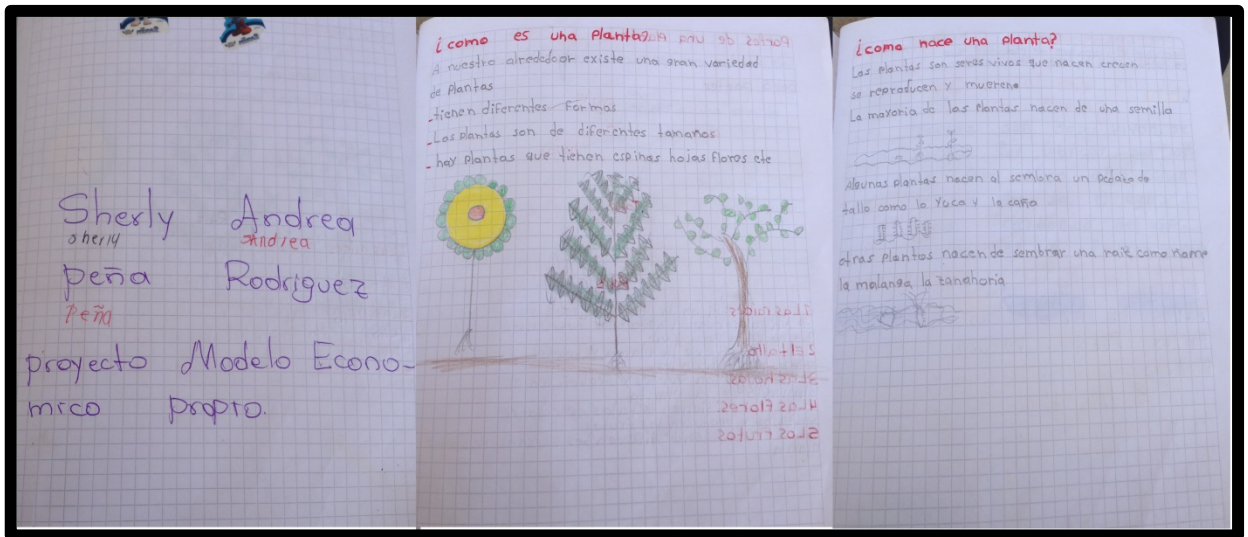 Sherly Andrea
sherly Andrea
peña Rodriguez
Peña
proyecto Modelo Econo-
mico propio.
¿como es una planta?
A nuestro alrededor existe una gran variedad
de plantas
-tienen diferentes formas
-Las plantas son de diferentes tamanos
-hay plantas que tienen espinas hojas flores etc
¿como nace una planta?
Las plantas son seres vivos que nacen crecen
se reproducen y muerene
La mayoria de las plantas nacen de una semilla
Algunas plantas nacen al sembra un pedaito de
tallo como la yuca y la caña
otras plantas nacen de sembrar una raiz como ñame
la malanga la zanahoria